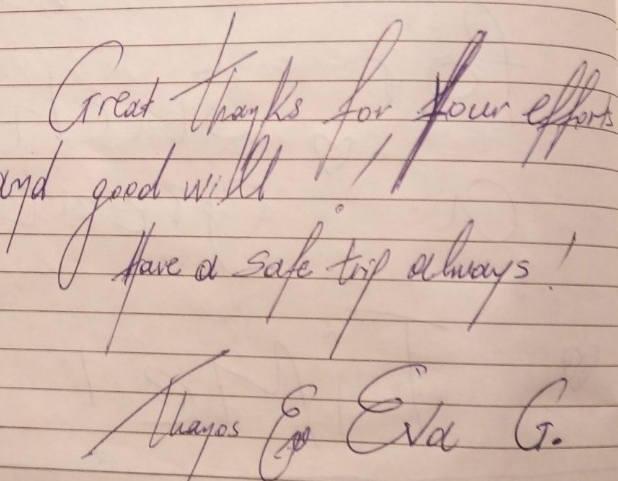 Great thanks for Your efforts
and good will !
Have a safe trip always!
Thanos & Eva G.